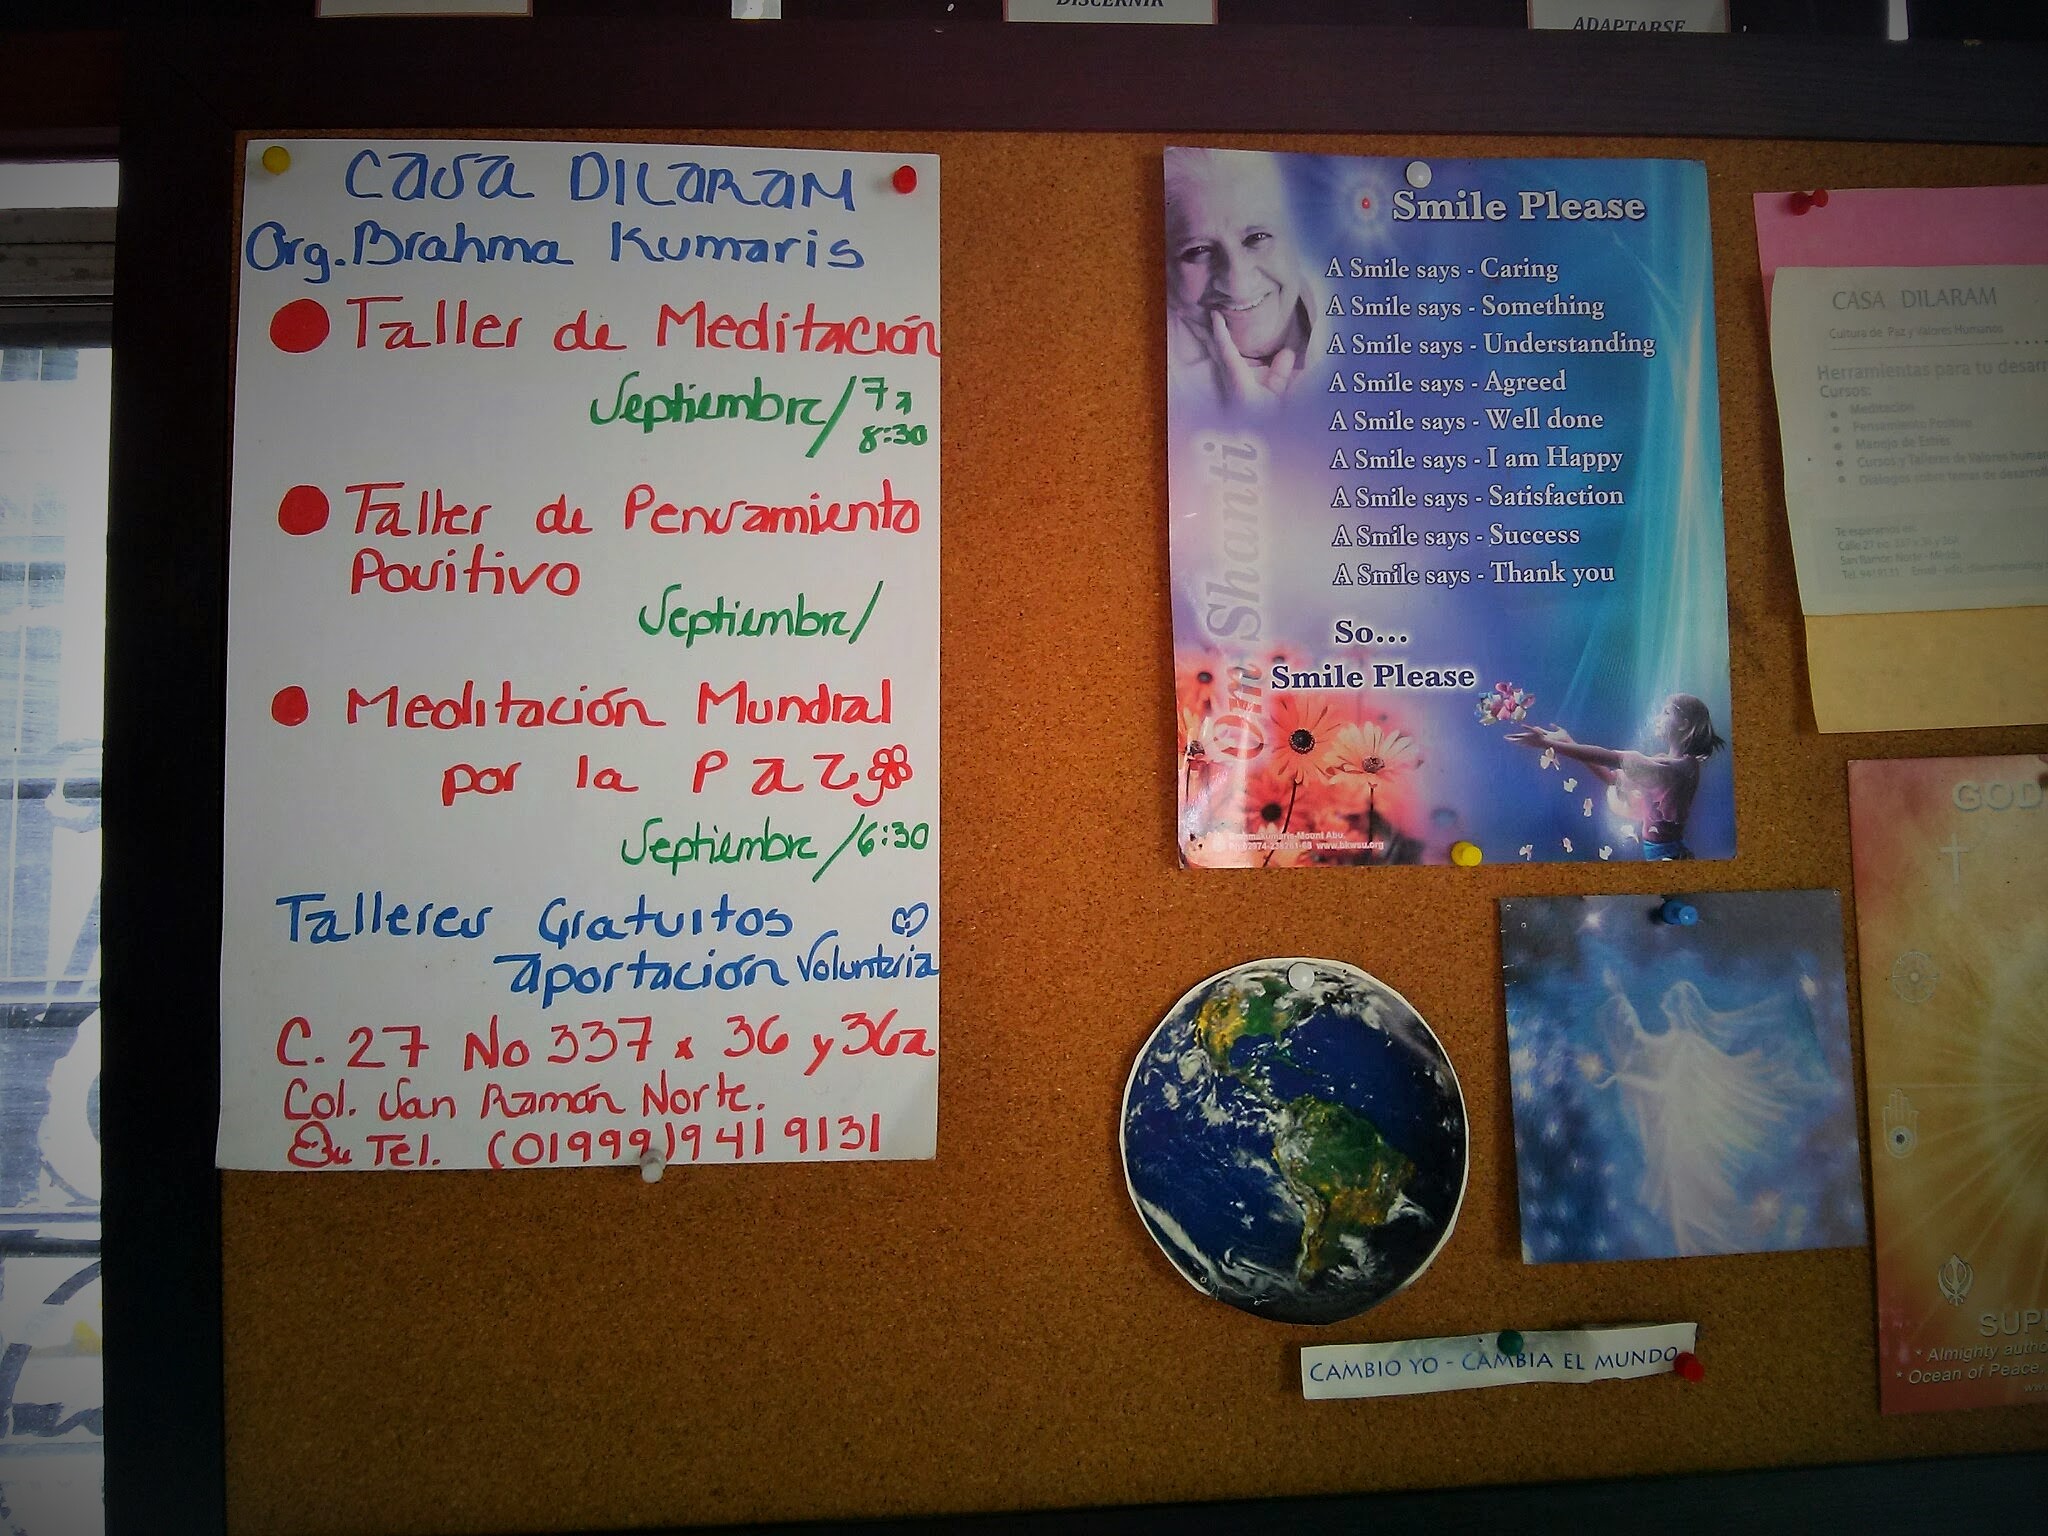 DISCERNIR
ADAPTARSE
Casa DILARAM
Org. Brahma Kumaris
Taller de Meditación
Septiembre/ 7 a
8:30
Taller de Pensamiento
Positivo
Septiembre/
Meditación Mundial
por la Paz
Septiembre/6:30
Talleres Gratuitos
aportación Voluntaria
C. 27 No 337 x 36 y 36a
Col. San Ramón Norte.
Tel. (01999)941 9131
Smile Please
A Smile says - Caring
A Smile says - Something
A Smile says - Understanding
A Smile says - Agreed
A Smile says - Well done
A Smile says - I am Happy
A Smile says - Satisfaction
A Smile says - Success
A Smile says - Thank you
So...
Smile Please
Om Shanti
Brahmakumaris-Mount Abu.
www.bkwsu.org
CASA DILARAM
Cultura de Paz y Valores Humanos
Herramientas para tu
Cursos:
Meditación
Pensamiento Positivo
Manejo de Estrés
Cursos y Talleres de Valores
Dialogos sobre temas de
Te esperamos en:
Calle 27 no. 337 x 36 y 36A
San Ramon Norte - Mérida
Tel. 9419131 Email -
GOD
* Almighty
* Ocean of Peace,
CAMBIO YO - CAMBIA EL MUNDO